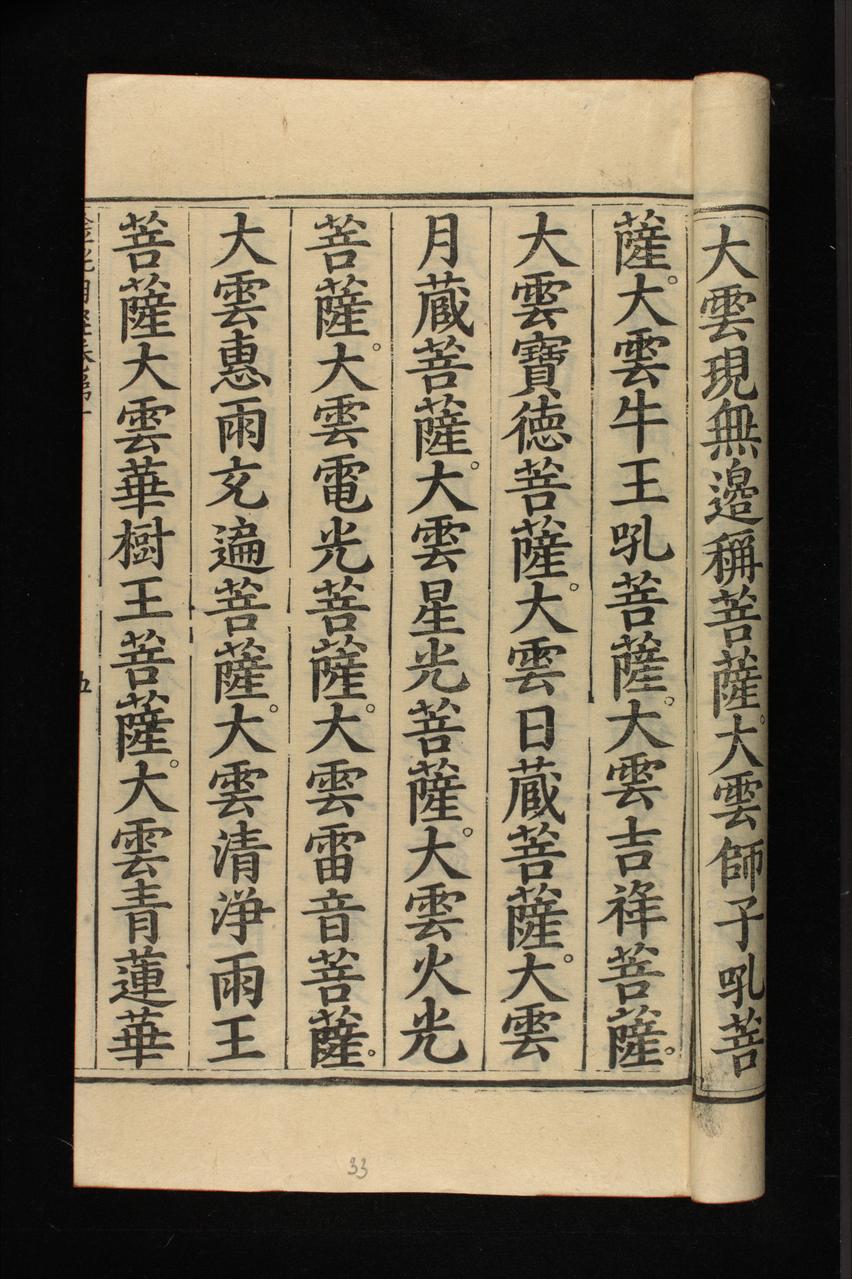 大雲現無邊稱菩薩。大雲師子吼菩
薩。大雲牛王吼菩薩。大雲吉祥菩薩。
大雲寶德菩薩。大雲日藏菩薩。大雲
月藏菩薩。大雲星光菩薩。大雲火光
菩薩。大雲電光菩薩。大雲雷音菩薩。
大雲惠雨充遍菩薩。大雲清淨雨王
菩薩大雲華樹王菩薩。大雲青蓮華
五
33